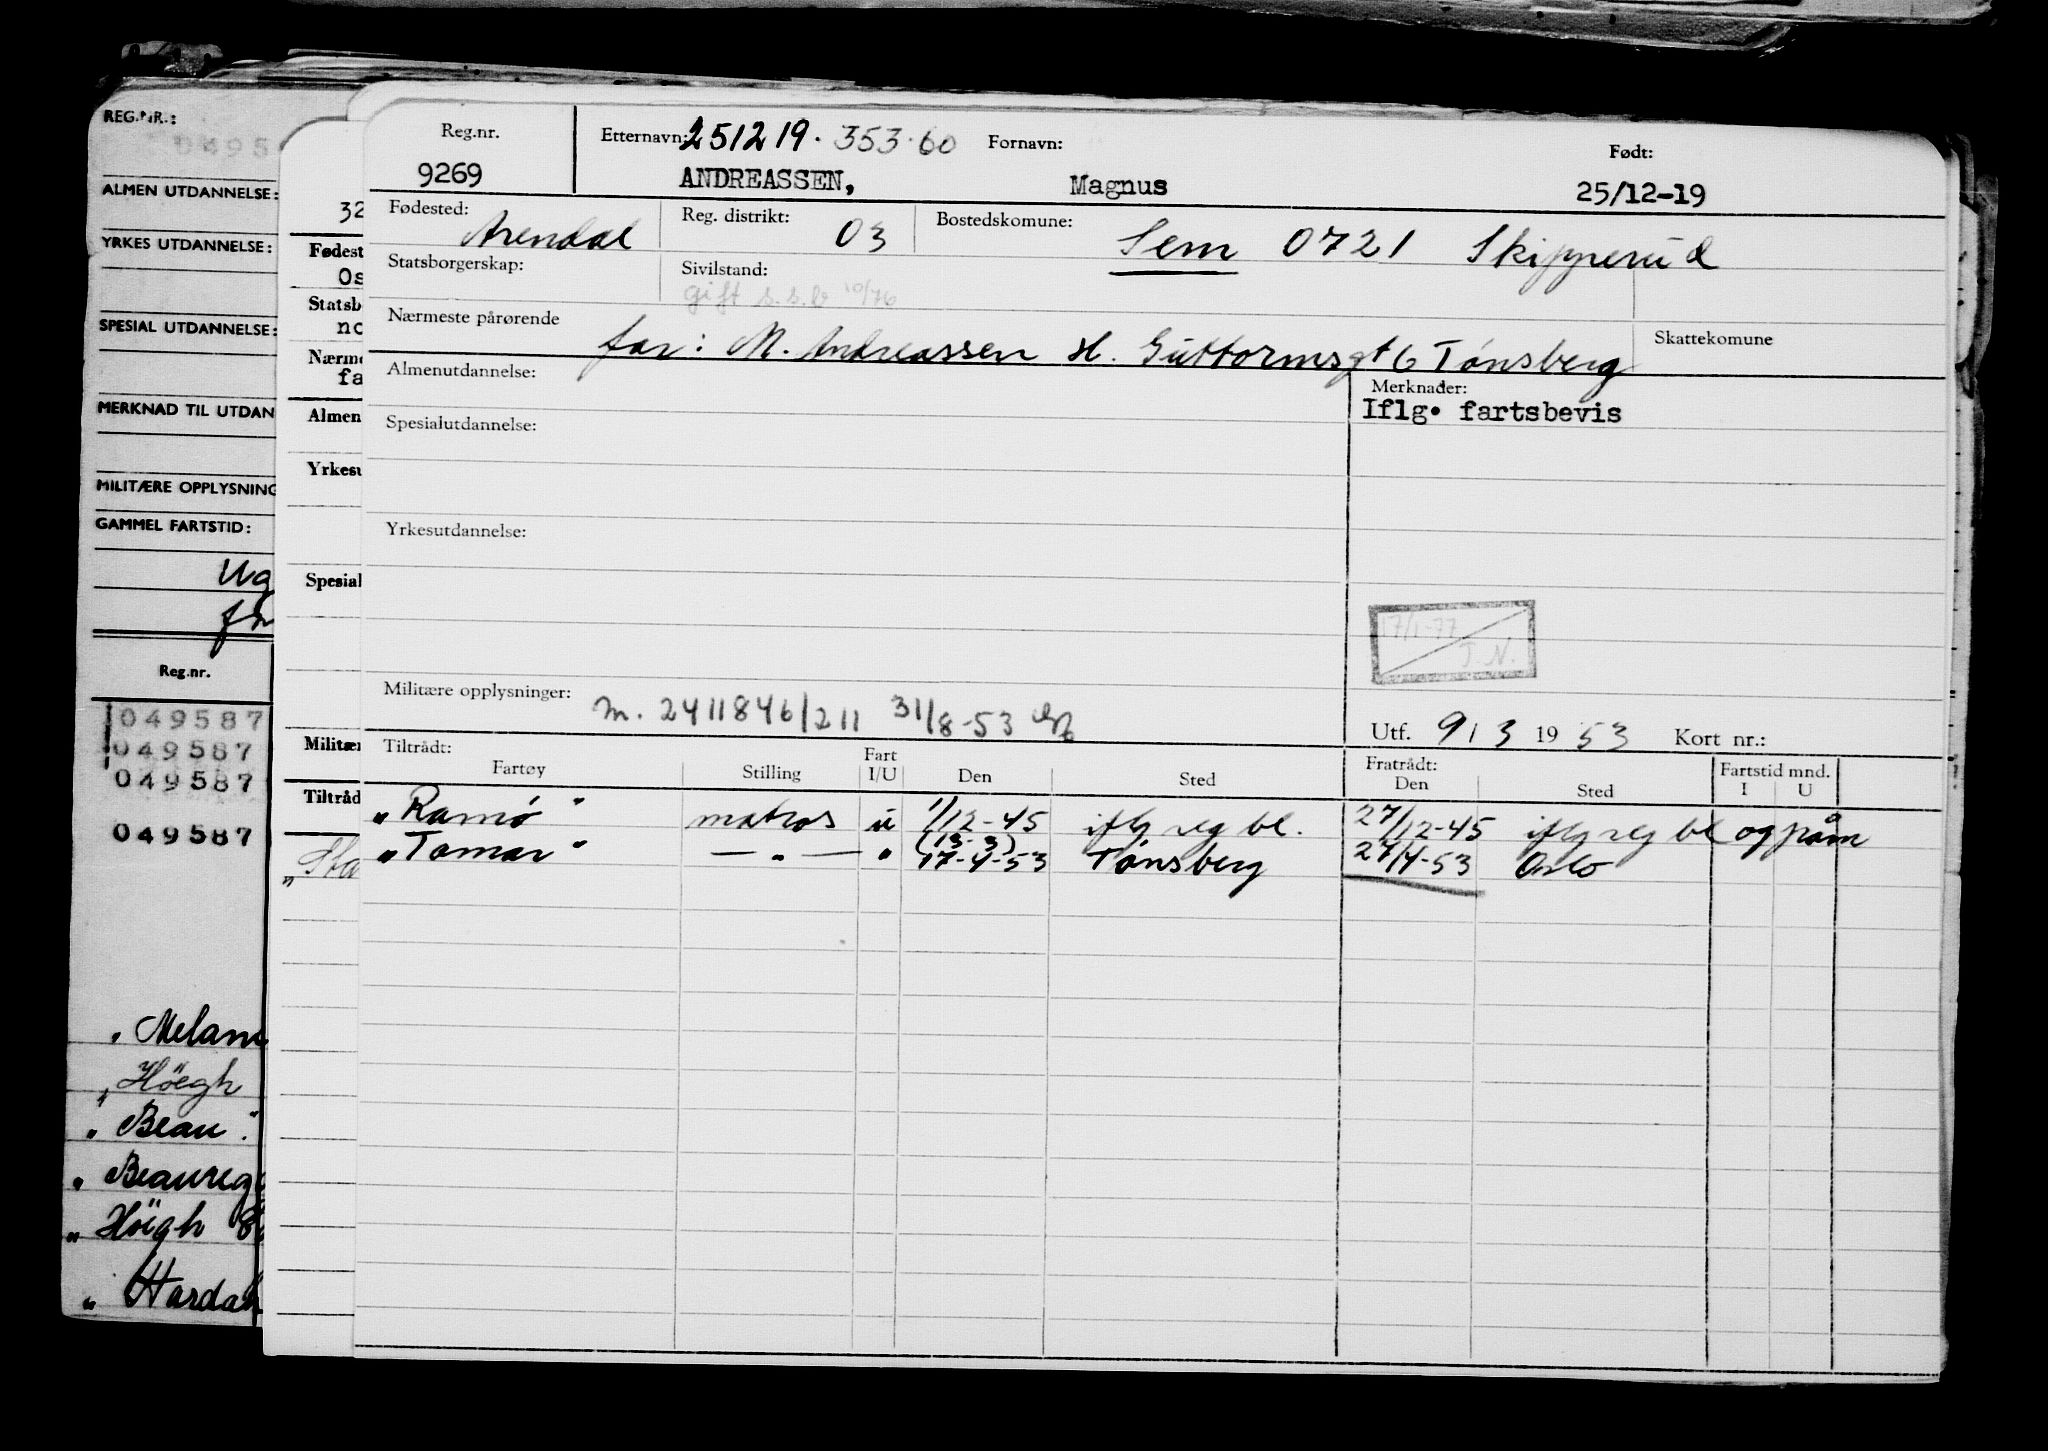 REG.NR.:
ALMEN UTDANNELSE:
YRKES UTDANNELSE:
SPESIAL UTDANNELSE:
MERKNAD TIL UTDAN
MILITÆRE OPPLYSNING
GAMMEL FARTSTID:
Reg.nr.
049587
049587
049587
049587
"Melan
"Höegh
"Beau"
"Beaureg
"Höegh
"Harda
32
Fødest
Os
Statsb
no
Nærme
fa
Almen
Yrkesu
Spesial
Militær
Tiltråd
Reg.nr. Etternavn: 251219.353.60 Fornavn: Født:
9269 ANDREASSEN, Magnus 25/12-19
Fødested: Arendal Reg. distrikt: 03 Bostedskomune: Sem 0721 Skipperud
Statsborgerskap: Sivilstand: gift s.s.b 10/76
Nærmeste pårørende far: M. Andreassen H. Guttormsgt 6 Tønsberg Skattekomune
Almenutdannelse: Merknader:
Iflg. fartsbevis
Spesialutdannelse:
Yrkesutdannelse:
17/1-77
J.N.
Militære opplysninger: m. 2411846/211 31/8-53
Utf. 9/3 1953 Kort nr.:
Tiltrådt: Fratrådt: Fartstid mnd.
Fartøy Stilling Fart I/U Den Sted Den Sted I U
"Ramø" matros u 1/12-45 iflg reg bl. 27/12-45 iflg reg bl og påm
"Tamar" — " — " (13-3) 17-4-53 Tønsberg 27/4-53 Oslo